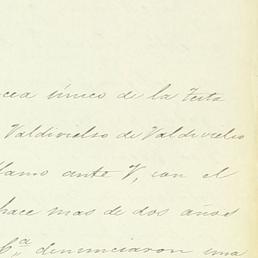 cea único de la testa
Valdivielso de Valdivielso
llamo ante V, con el
hace mas de dos años
C.ª denunciaron una